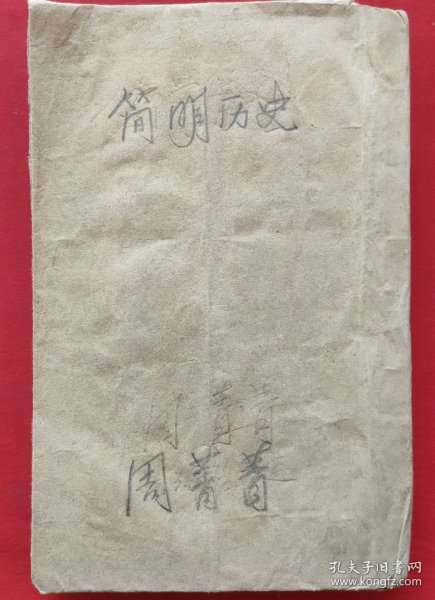 简明历史
周菁菁
周菁菁
孔夫子旧书网
www.kongfz.com